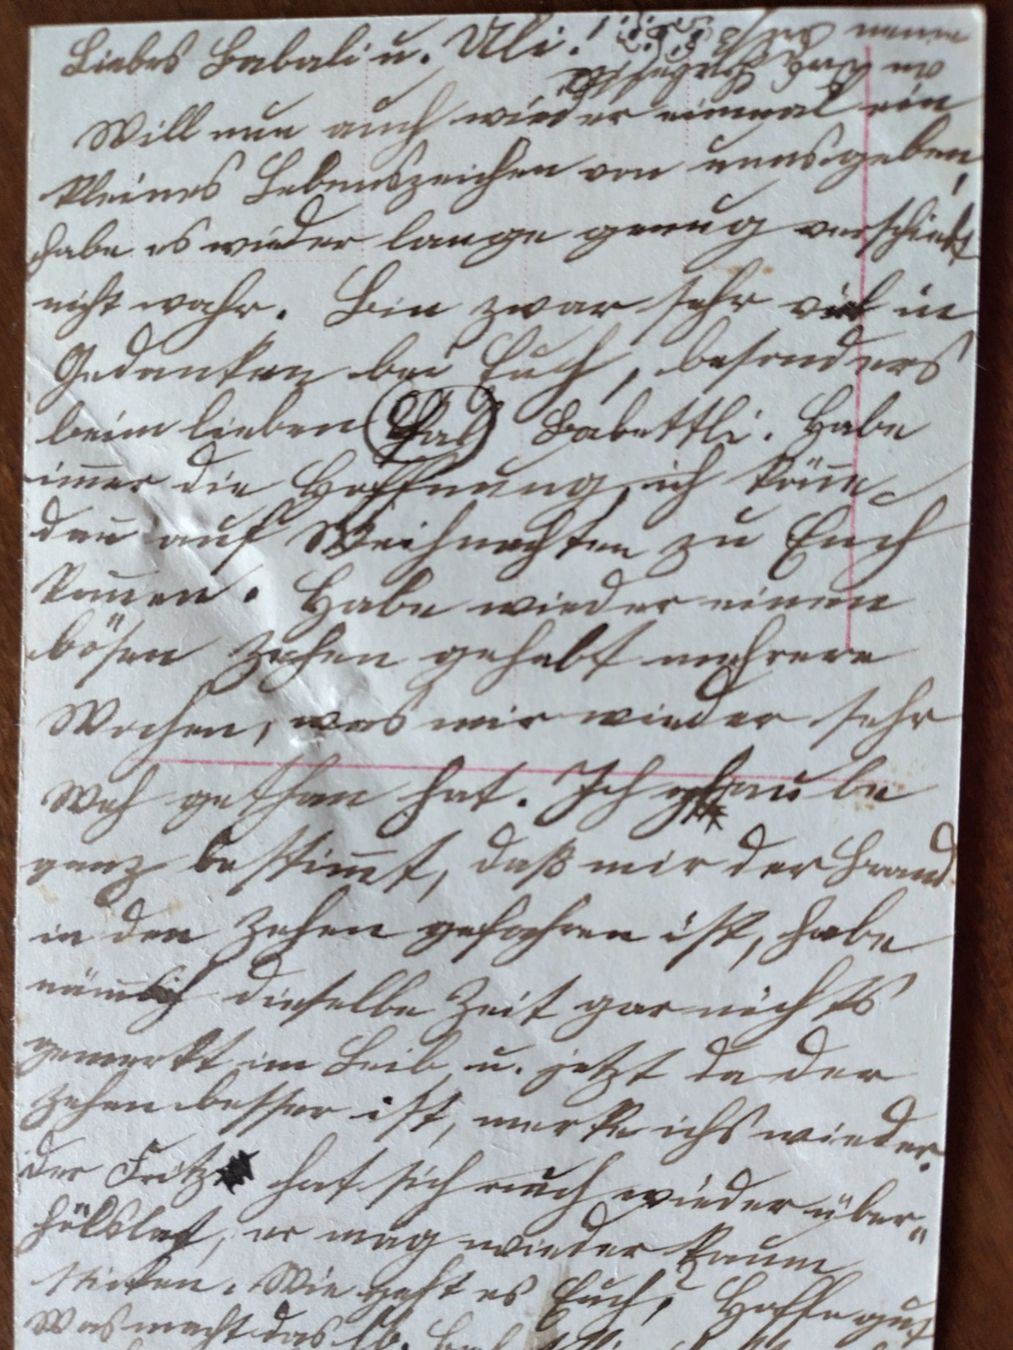 Liebes Babali u. Uli!
Will nun auch wieder einmal ein
kleines Lebenszeichen von uns geben,
habe es wieder lange genug verschiebt
nicht wahr. Bin zwar sehr viel in
Gedanken bei Euch, besonders
beim lieben Babettli. Habe
im̅er die Hoffnung, ich kön̅e
dan̅ auf Weihnachten zu Euch
kom̅en. Habe wieder einen
bösen Zehen gehabt mehrere
Wochen, was mir wieder sehr
Weh gethan hat. Ich glaube
ganz bestim̅t, daß mir der Brand
in den Zehen gefahren ist, habe
nämlich dieselbe Zeit gar nichts
gemerkt im Leib, u. jetzt da der
Zehen besser ist, merke ichs wieder.
der Fritz hat sich auch wieder über-
er mag wieder kaum
Wie geht es Euch? Hoffe gut
Was macht das lb.